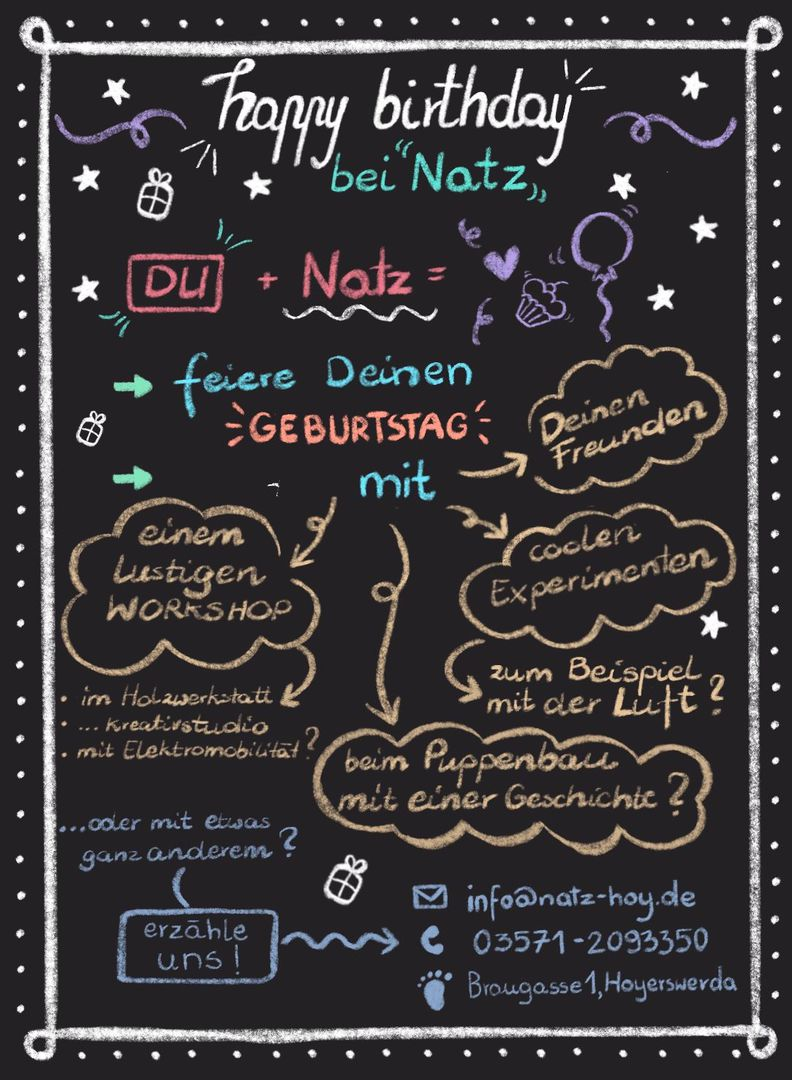 happy birthday
bei "Natz„
DU + Natz =
feiere Deinen
GEBURTSTAG
mit
Deinen
Freunden
einem
lustigen
WORKSHOP
coolen
Experimenten
zum Beispiel
mit der Luft?
• im Holzwerkstatt
• ... kreativstudio
• mit Elektromobilität?
beim Puppenbau
mit einer Geschichte?
...oder mit etwas
ganz anderem?
erzähle
uns!
info@natz-hoy.de
03571-2093350
Braugasse 1, Hoyerswerda